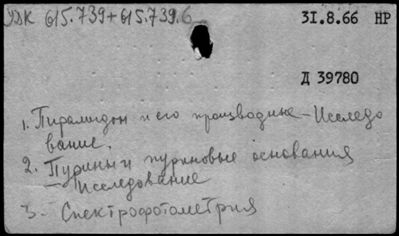 УДК 615.739+615.739.6
31.8.66 НР
Д 39780
1. Пирамидон и его производные - Исследо
вание.
2. Пурины и пуриновые основания
- Исследование
3. Спектрофотометрия